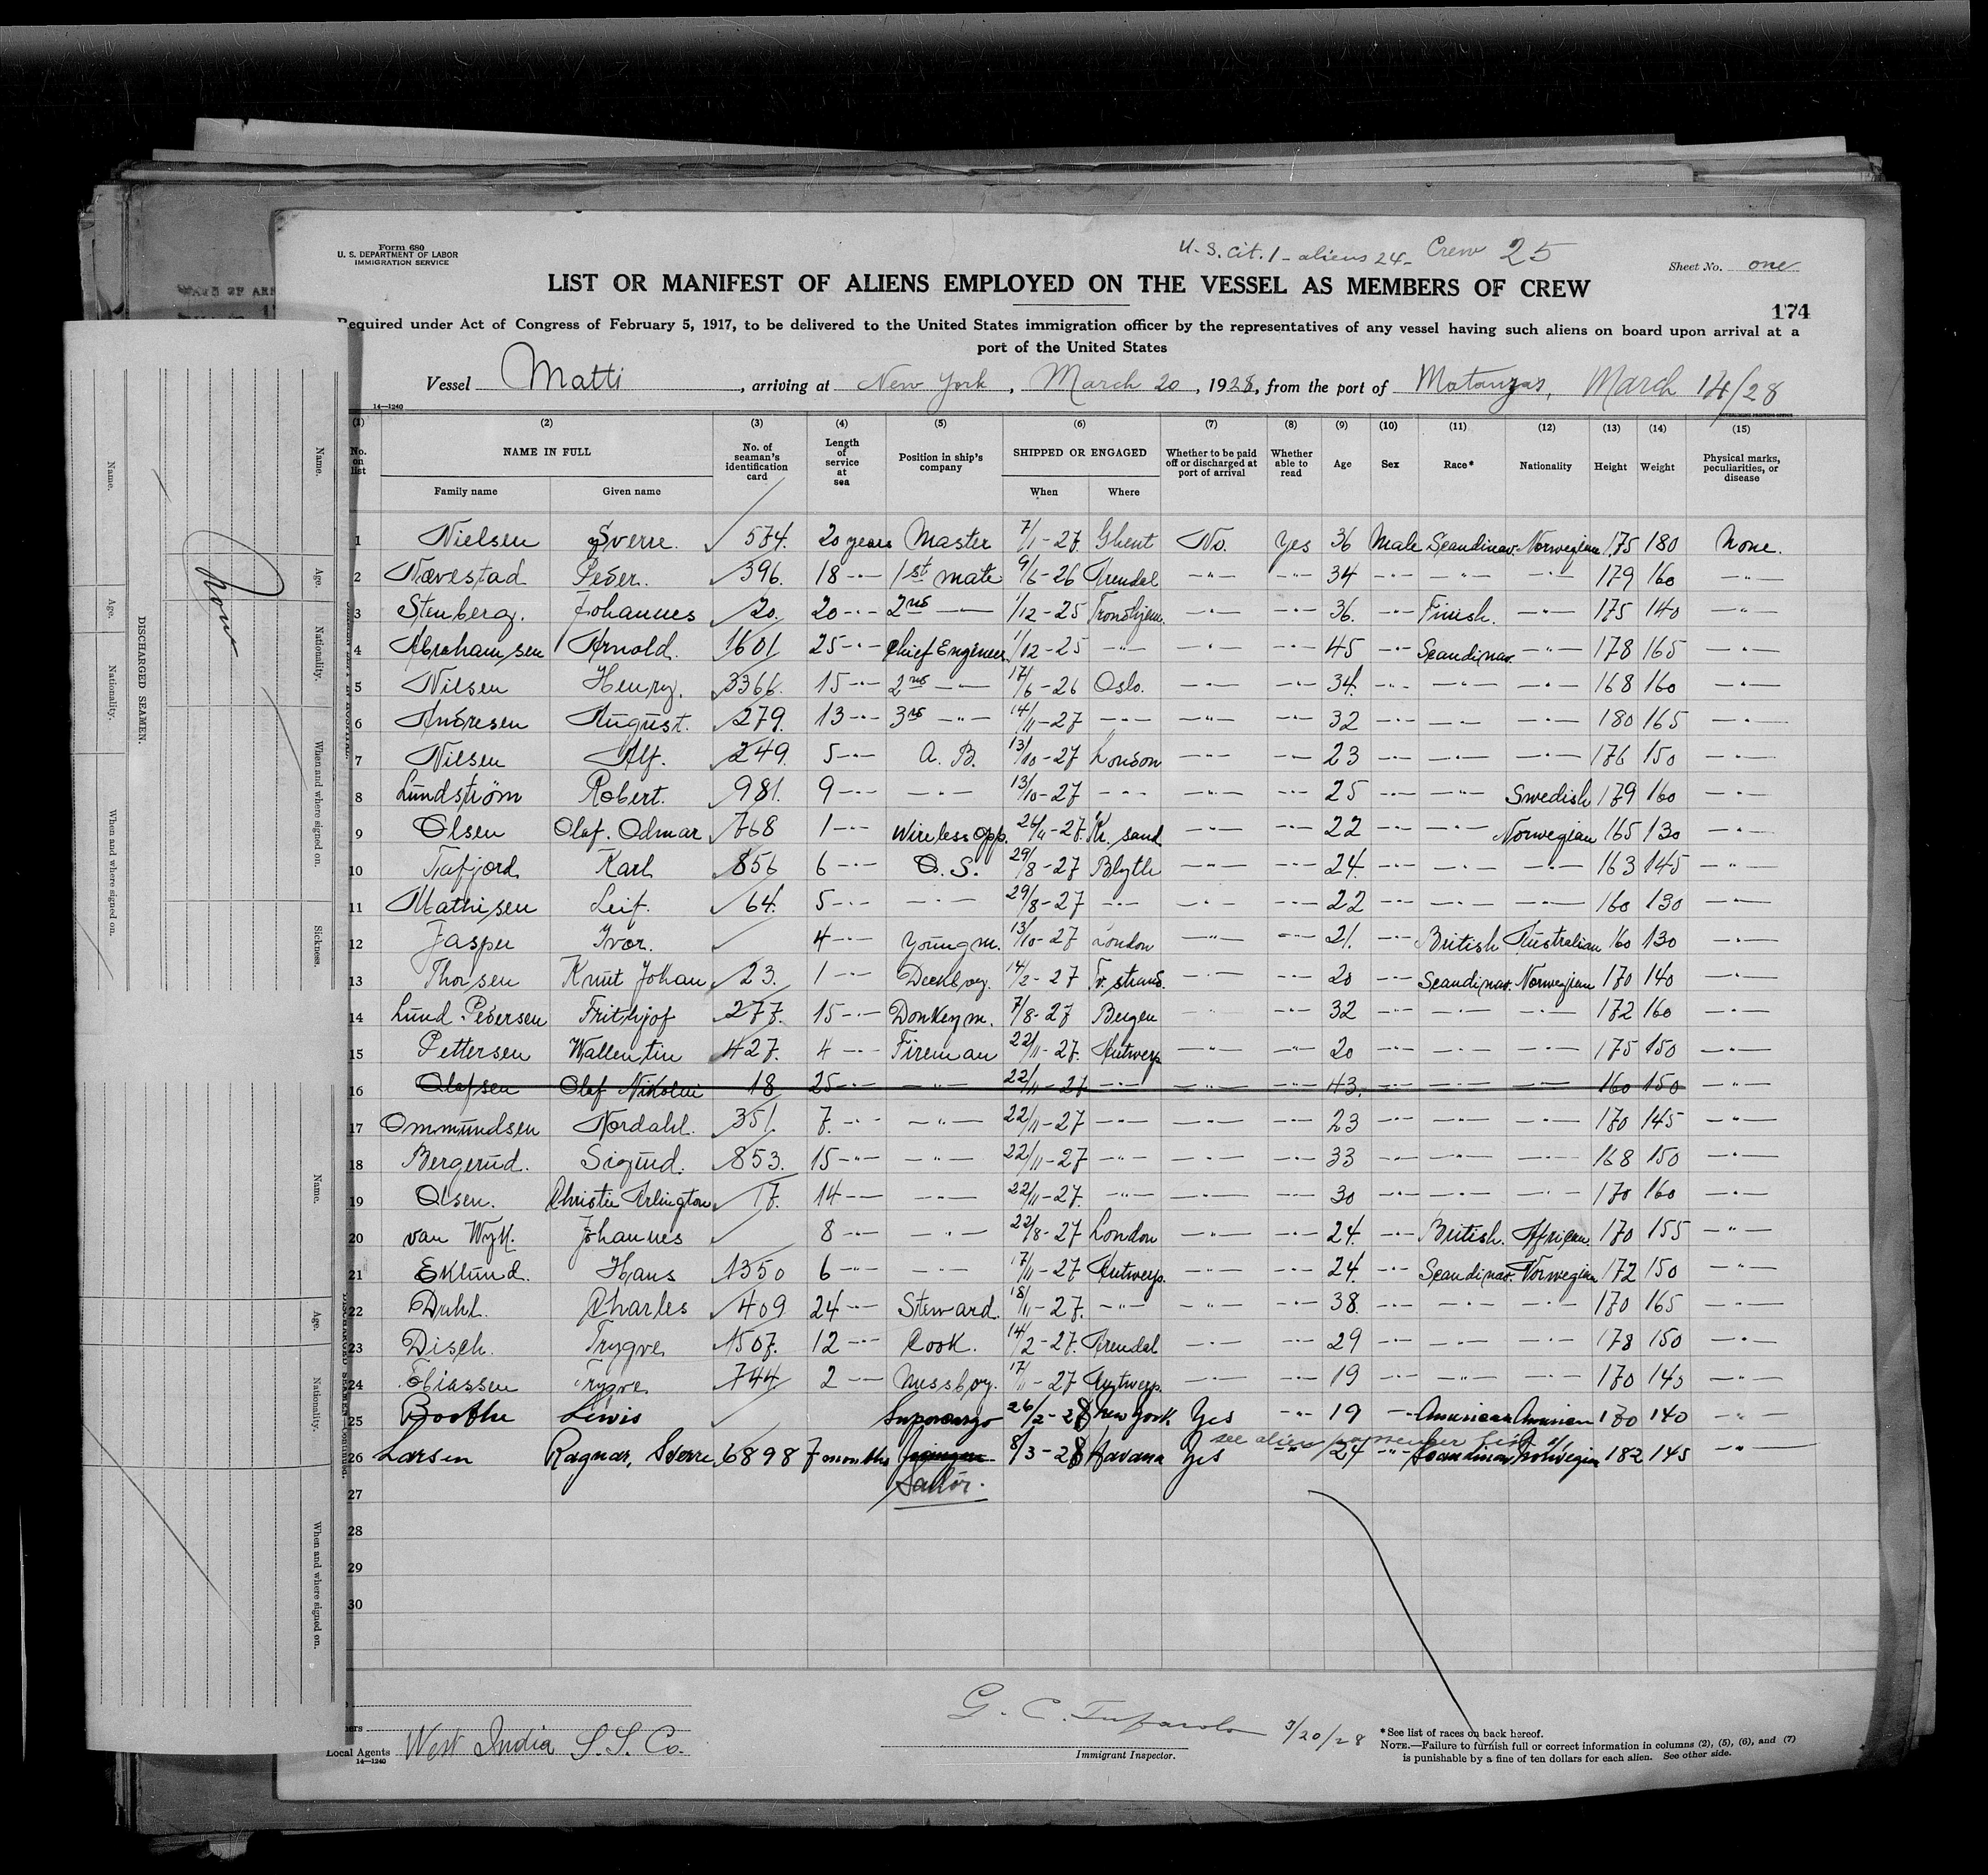 Form 680
U. S. DEPARTMENT OF LABOR
IMMIGRATION SERVICE
U. S. cit. 1 - aliens 24 - Crew 25
Sheet No. one
LIST OR MANIFEST OF ALIENS EMPLOYED ON THE VESSEL AS MEMBERS OF CREW
174
Required under Act of Congress of February 5, 1917, to be delivered to the United States immigration officer by the representatives of any vessel having such aliens on board upon arrival at a
port of the United States
Vessel Matti, arriving at New York, March 20, 1928, from the port of Matanzas, March 14/28
14—1240
(1) (2) (3) (4) (5) (6) (7) (8) (9) (10) (11) (12) (13) (14) (15)
No. on list NAME IN FULL No. of seaman's identification card Length of service at sea Position in ship's company SHIPPED OR ENGAGED Whether to be paid off or discharged at port of arrival Whether able to read Age Sex Race* Nationality Height Weight Physical marks, peculiarities, or disease
Family name Given name When Where
1 Nielsen Sverre. 574. 20 years Master 7/11-27 Ghent No. Yes 36 Male Scandinav. Norwegian 175 180 None.
2 Nævestad Peder. 396. 18 -"- 1st mate 9/6-26 Arendal -"- -"- 34 -"- -"- -"- 179 160 -"-
3 Stenberg. Johannes 20. 20 -"- 2nd -"- 1/12-25 Trondhjem. -"- -"- 36. -"- Finish. -"- 175 140 -"-
4 Abrahamsen Arnold. 1601 25 -"- Chief Engineer 1/12-25 -"- -"- -"- 45 -"- Scandinav. -"- 178 165 -"-
5 Nilsen Henry. 3366. 15 -"- 2nd -"- 17/6-26 Oslo. -"- -"- 34. -"- -"- -"- 168 160 -"-
6 Andresen August. 279. 13 -"- 3rd -"- 14/11-27 -"- -"- -"- 32 -"- -"- -"- 180 165 -"-
7 Nilsen Alf. 249. 5 -"- A. B. 13/10-27 London -"- -"- 23 -"- -"- -"- 176 150 -"-
8 Lundstrøm Robert. 981. 9 -"- -"- 13/10-27 -"- -"- -"- 25 -"- -"- Swedish 179 160 -"-
9 Olsen Olaf. Odmar 768 1 -"- Wireless opp. 26/11-27. Kr. sand -"- -"- 22 -"- -"- Norwegian 165 130 -"-
10 Tafjord Karl 856 6 -"- O. S. 29/8-27 Blyth -"- -"- 24. -"- -"- -"- 163 145 -"-
11 Mathisen Leif. 64. 5 -"- -"- 29/8-27 -"- -"- -"- 22 -"- -"- -"- 160 130 -"-
12 Jasper Ivor. 4 -"- Young m. 13/10-27 London -"- -"- 21. -"- British Australian 160 130 -"-
13 Thorsen Knut Johan 23. 1 -"- Decksboy. 14/2-27 Tv. strand. -"- -"- 20 -"- Scandinav. Norwegian 170 140 -"-
14 Lund-Pedersen Frithjof 277. 15 -"- Donkeym. 7/8-27 Bergen -"- -"- 32 -"- -"- -"- 172 160 -"-
15 Pettersen Wallentin 427. 4 -"- Fireman 22/11-27. Antwerp -"- -"- 20 -"- -"- -"- 175 150 -"-
16 Olafsen Olaf Nikolai 18 25 -"- -"- 22/11-27 -"- -"- -"- 43. -"- -"- -"- 160 150 -"-
17 Ommundsen Nordahl. 351. 7. -"- -"- 22/11-27 -"- -"- -"- 23 -"- -"- -"- 170 145 -"-
18 Bergerud. Sigurd. 853. 15 -"- -"- 22/11-27 -"- -"- -"- 33 -"- -"- -"- 168 150 -"-
19 Olsen. Christie Arlington 17. 14 -"- -"- 22/11-27. -"- -"- -"- 30 -"- -"- -"- 170 160 -"-
20 van Wyk. Johannes 8 -"- -"- 22/8-27 London -"- -"- 24. -"- British. African. 170 155 -"-
21 Eklund. Hans 1350 6 -"- -"- 17/11-27 Antwerp. -"- -"- 24. -"- Scandinav. Norwegian 172 150 -"-
22 Dahl. Charles 409 24 -"- Steward. 18/11-27. -"- -"- -"- 38. -"- -"- -"- 170 165 -"-
23 Disch. Trygve 1507. 12 -"- Cook. 14/2-27. Arendal -"- -"- 29 -"- -"- -"- 178 150 -"-
24 Eliassen Trygve 744 2 -"- Messboy. 17/11-27 Antwerp. -"- -"- 19 -"- -"- -"- 170 145 -"-
25 Boothe Lewis Supercargo 26/2-28 New York. Yes -"- 19 -"- American American 170 140 -"-
see alien passenger list
26 Larsen Ragnar, Sverre 6898 7 months 8/3-28 Havana Yes -"- 24 -"- Scandinav Norwegian 182 145 -"-
27 Sailor.
28
29
30
Local Agents West India S. S. Co.
14—1240
3/20/28
Immigrant Inspector.
*See list of races on back hereof.
NOTE.—Failure to furnish full or correct information in columns (2), (5), (6), and (7)
is punishable by a fine of ten dollars for each alien. See other side.
DISCHARGED SEAMEN.
Name. Age. Nationality. When and where signed on.
Name. Age. Nationality. When and where signed on. Sickness.
None
Name. Age. Nationality. When and where signed on.